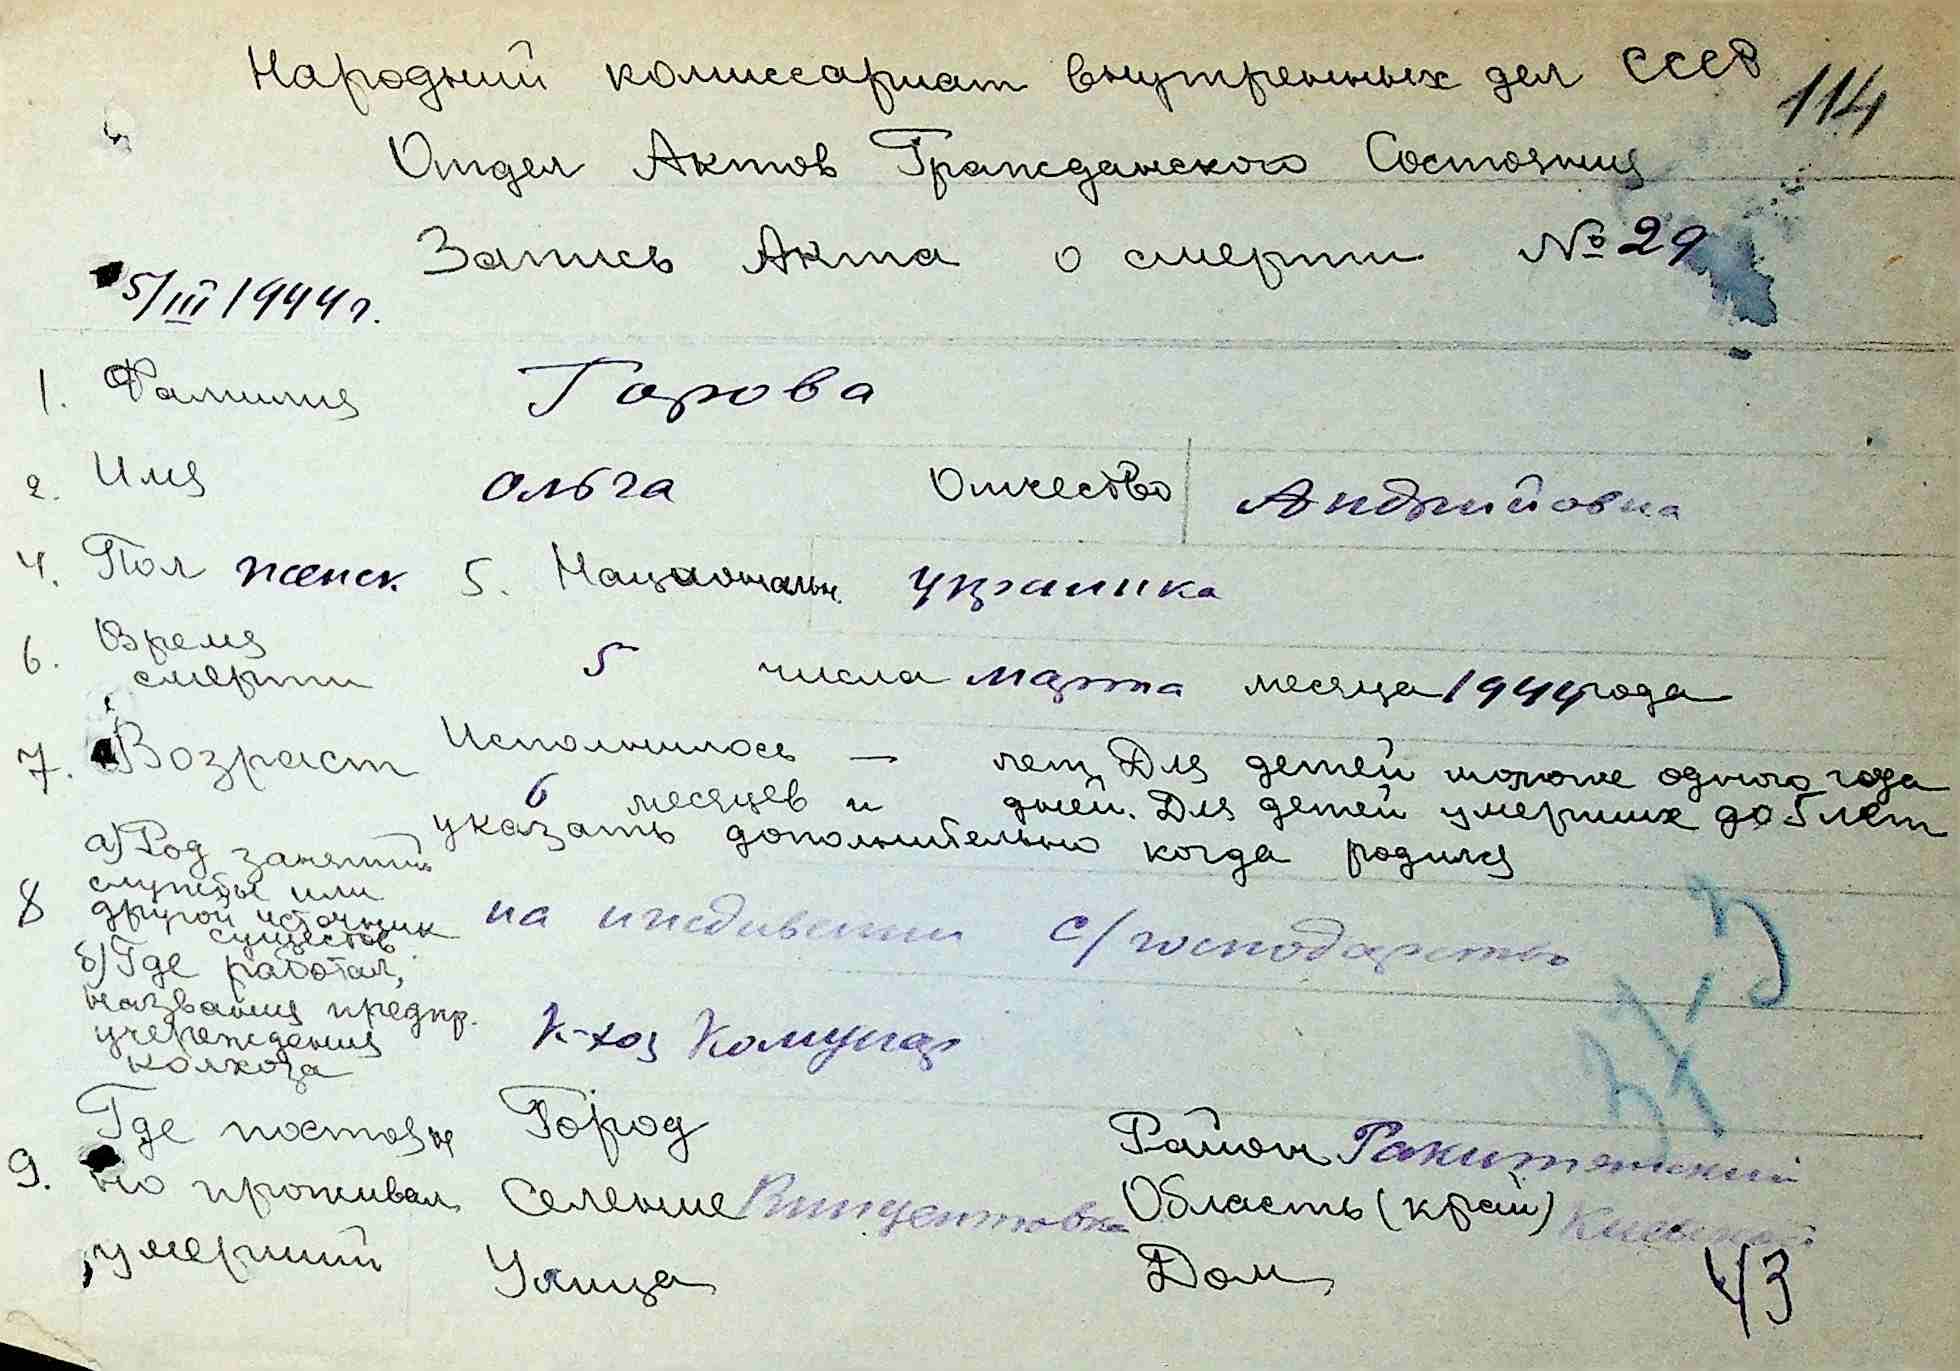 Народный комиссариат внутренных дел СССР
114
Отдел Актов Гражданского Состояния
Запись Акта о смерти № 29
5/III 1944 г.
1. Фамилия Горова
2. Имя Ольга Отчество Андрийовна
4. Пол женск. 5. Националън. украинка
6. Время смерти 5 числа марта месяца 1944 года
7. Возраст Исполнилось — лет Для детей моложе одного года
6 месяцев и дней. Для детей умерших до 5 лет
указать дополнительно когда родился
8 а) Род занятий
службы или
другой источник
существов.
на иждивении с/господарство
б) Где работал,
название предпр.
учереждения
колхоза
К-хоз Комунар
9. Где постоян
но проживал
умерший
Город Район Ракитянский
Селение Винцентовка Область (край) Киевской
Улица Дом
43